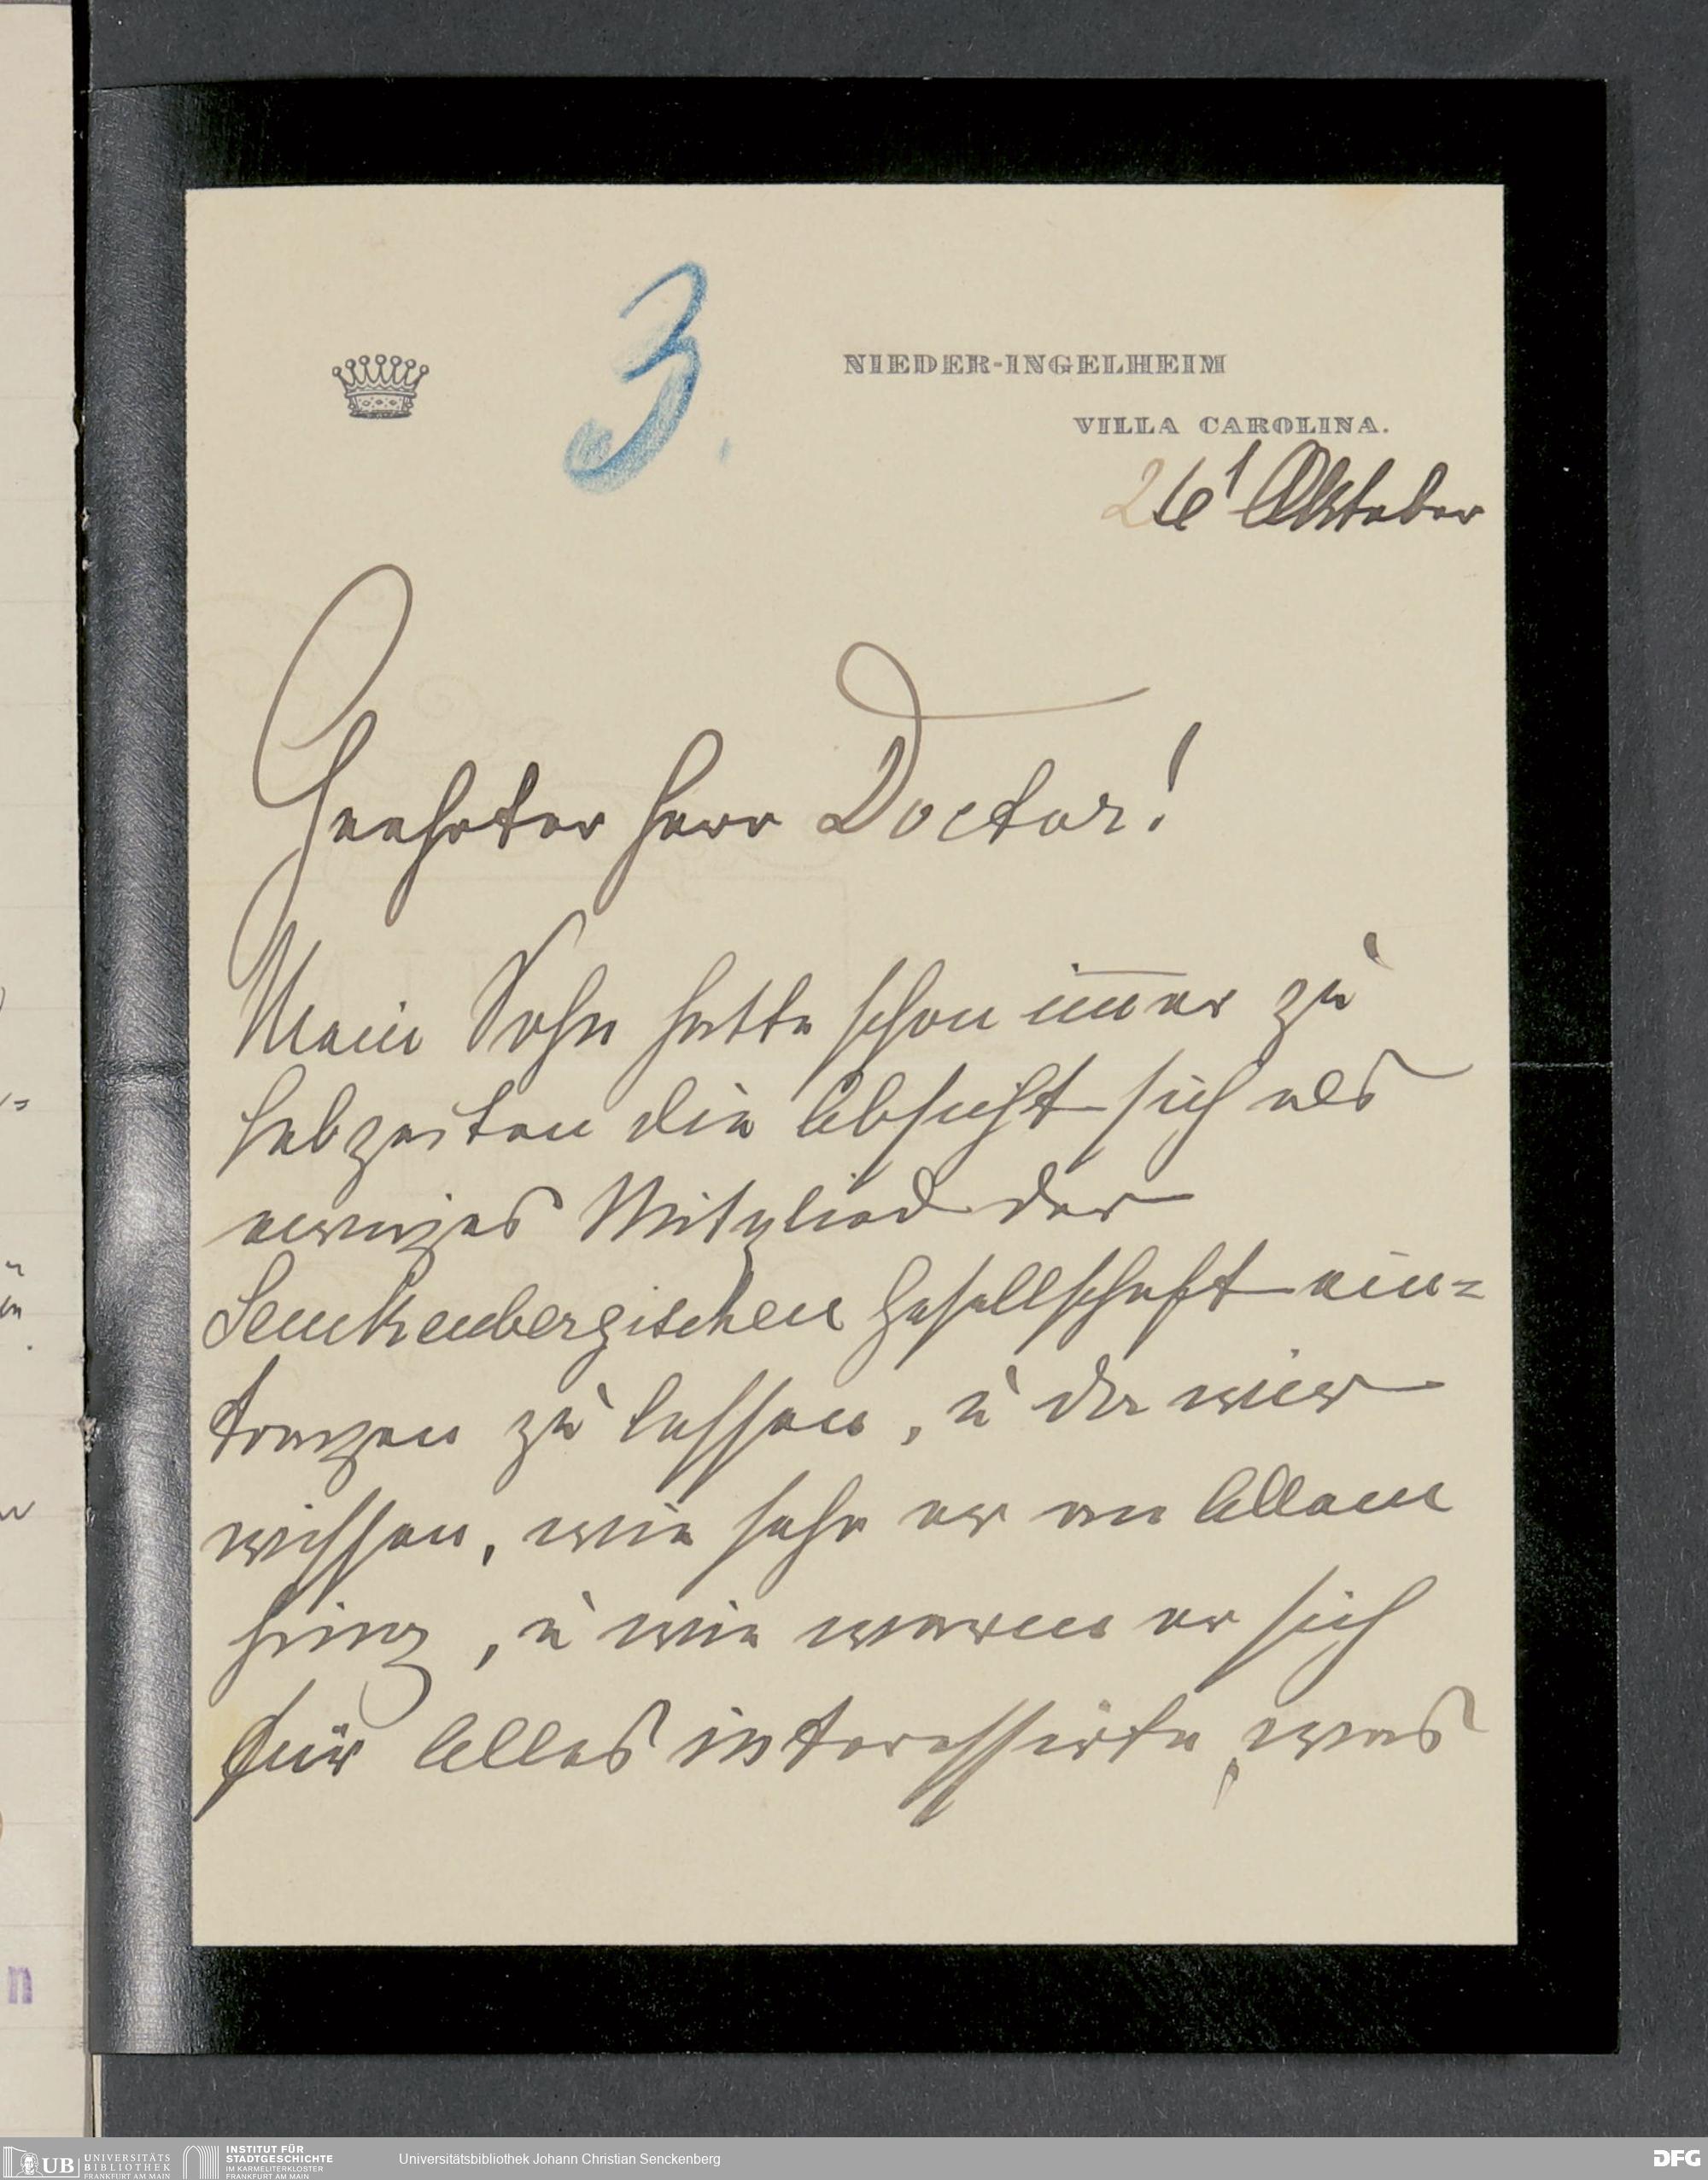 3.
NIEDER-INGELHEIM
VILLA CAROLINA.
26t Oktober
Geehrter Herr Doctor!
Mein Sohn hatte schon im̅er zu
Lebzeiten die Absicht sich als
ewiges Mitglied der
Senckenbergischen Gesellschaft ein=
tragen zu lassen, u da wir
wissen, wie sehr er an Allem
hing, u wie warm er sich
für Alles interessirte, was
n
UB UNIVERSITÄTS
BIBLIOTHEK
FRANKFURT AM MAIN
INSTITUT FÜR
STADTGESCHICHTE
IM KARMELITERKLOSTER
FRANKFURT AM MAIN
Universitätsbibliothek Johann Christian Senckenberg
DFG